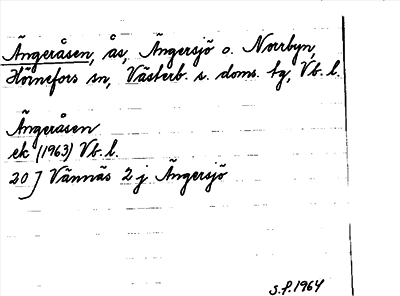 Ängeråsen, ås, Ängersjö o. Norrbyn,
Hörnefors sn, Västerb. s. doms. tg, Vb. l.
Ängeråsen
ek (1963) Vb. l.
20 J Vännäs 2 j Ängersjö
S.P. 1964